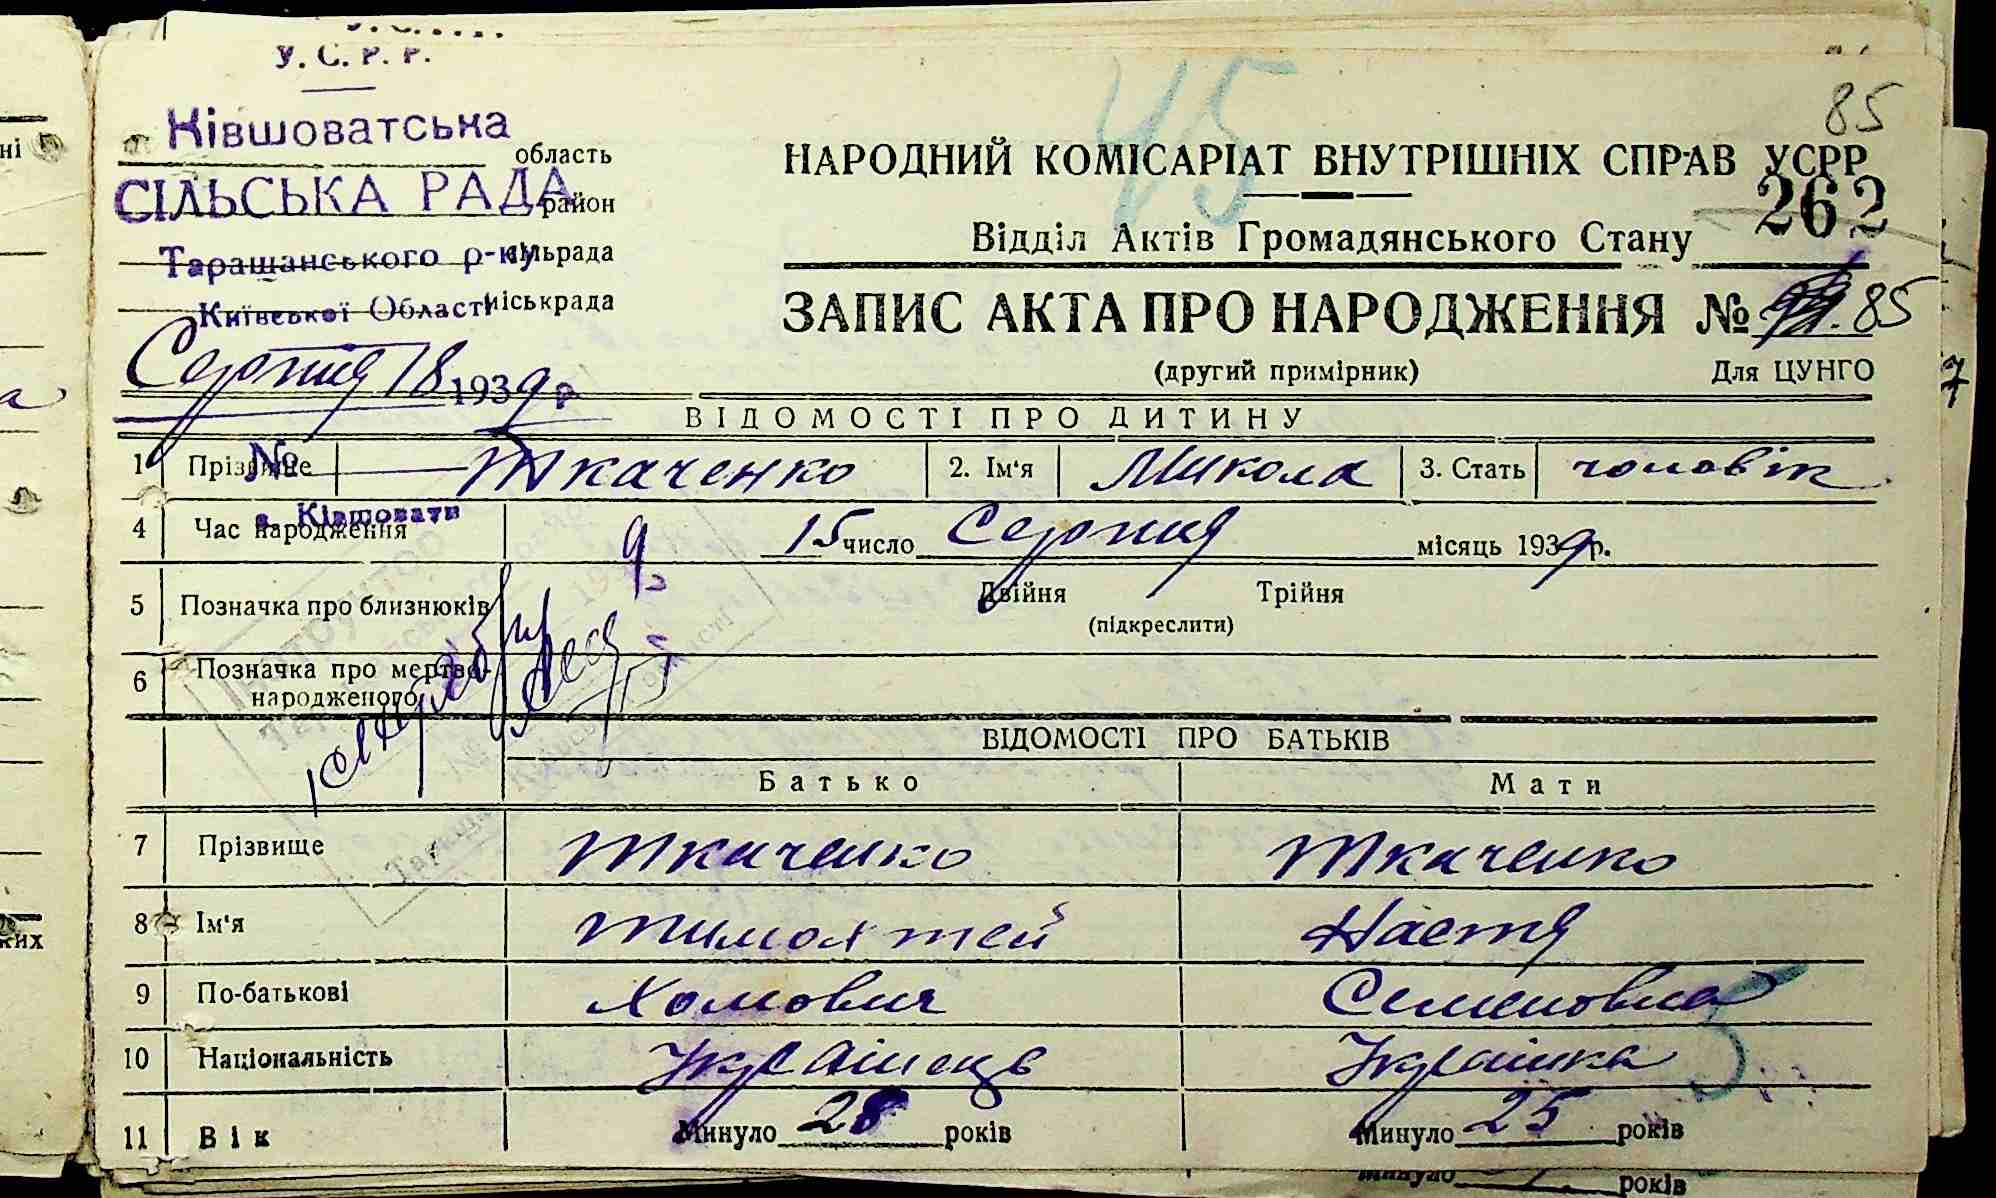 У. С. Р. Р.
85
Ківшоватська
область
НАРОДНИЙ КОМІСАРІАТ ВНУТРІШНІХ СПРАВ УСРР
45
СІЛЬСЬКА РАДА
район
262
Таращанського р-ну
сільрада
Відділ Актів Громадянського Стану
Київської Області
міськрада
ЗАПИС АКТА ПРО НАРОДЖЕННЯ № 85
Серпня 18 1939 р
(другий примірник)
Для ЦУНГО
ВІДОМОСТІ ПРО ДИТИНУ
№
1 Прізвище Ткаченко 2. Ім'я Микола 3. Стать чоловік
с. Ківшовати
4 Час народження 15 число Серпня місяць 1939 р.
5 Позначка про близнюків Двійня Трійня
(підкреслити)
6 Позначка про мертво-
народженого
ВІДОМОСТІ ПРО БАТЬКІВ
Батько Мати
7 Прізвище Ткаченко Ткаченко
8 Ім'я Тимохтей Настя
9 По-батькові Хомович Семеновна
10 Національність Українець Українка
11 Вік Минуло 28 років Минуло 25 років
Минуло років